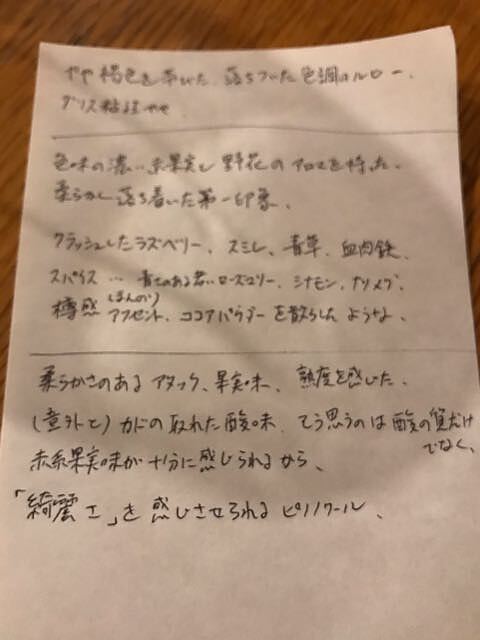 やや褐色を帯びた、落ちついた色調のルロー、
グリス粘性やや
色味の濃い赤果実と野花のアロマを持った、
柔らかく落ち着いた第一印象、
クラッシュしたラズベリー、スミレ、青草、血肉鉄、
スパイス… 青さのある若いローズマリー、シナモン、ナツメグ、
樽感 ほんのりアクセント、ココアパウダーを散らしたような、
柔らかさのあるアタック、果実味、熟度を感じた、
(意外と)カドの取れた酸味、そう思うのは酸の質だけでなく、
赤系果実味が十分に感じられるから、
「綺麗さ」を感じさせられるピノノワール、